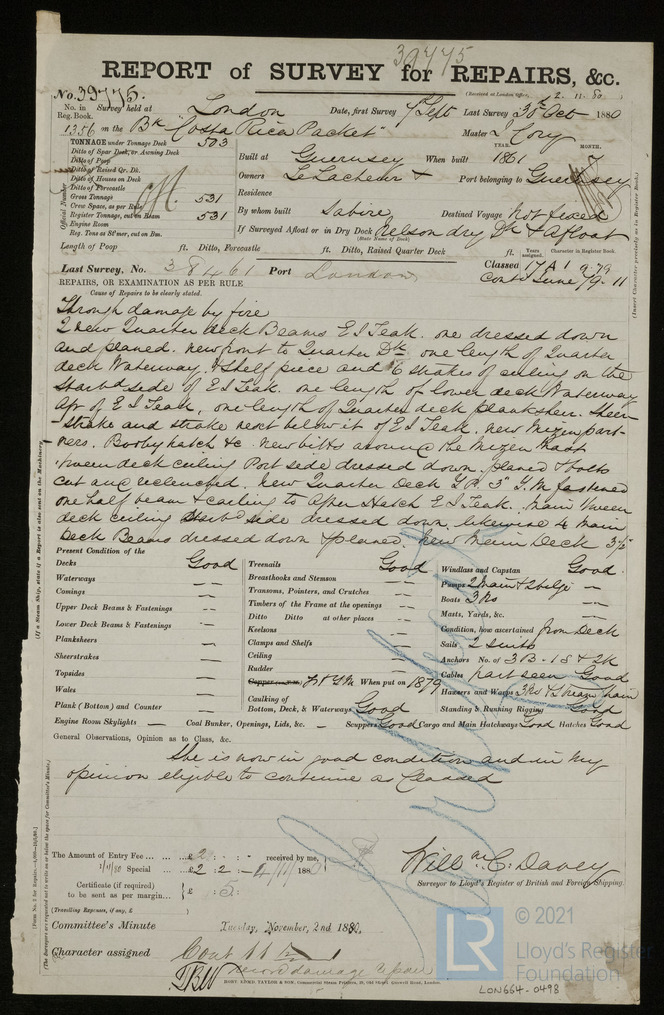 39775
REPORT of SURVEY for REPAIRS, &c.
(Received at London Office, 2. 11. 80
No. 39775.
No. in Reg. Book. Survey held at London Date, first Survey 7th Sept Last Survey 30th Oct 1880
1356 on the Bk "Costa Rica Packet" Master Cory
TONNAGE under Tonnage Deck 503
Ditto of Spar Deck, or Awning Deck
Ditto of Poop
Ditto of Raised Qr. Dk.
Ditto of Houses on Deck
Ditto of Forecastle
Gross Tonnage 531
Crew Space, as per Rule
Register Tonnage, cut on Beam 531
Engine Room
Reg. Tons as St'mer, cut on Bm.
Official Number
YEAR. MONTH.
Built at Guernsey When built 1861
Owners LeLacheur & Port belonging to Guernsey
Residence
By whom built Sabire Destined Voyage Not fixed
If Surveyed Afloat or in Dry Dock Nelson dry Dk & Afloat
(State Name of Dock)
Length of Poop ft. Ditto, Forecastle ft. Ditto, Raised Quarter Deck ft.
Years assigned. Character in Register Book.
Last Survey, No. 38461 Port London Classed 17 A 1 9.79
Contd June 79. 11
REPAIRS, OR EXAMINATION AS PER RULE
Cause of Repairs to be clearly stated.
Through damage by fire
2 new Quarter deck Beams E I Teak. one dressed down
and planed. new front to Quarter Dk one length of Quarter
deck Waterway & Shelf piece and 6 strakes of ceiling on the
Starbd side of E I Teak. one length of lower deck Waterway
Aft of E I Teak, one length of Quarter deck planksheer. Sheer
Strake and strake next below it of E I Teak. new Mizen part-
ners. Booby hatch &c. new bitts around the Mizen Mast
'tween deck ceiling Port side dressed down, planed & bolts
cut and reclenched. New Quarter Deck Y.P. 3" Y.M. fastened
one half beam & carling to After Hatch E I Teak. Main 'tween
deck ceiling Starbd side dressed down, likewise 4 Main
Deck Beams dressed down & planed. New Main Deck 3½
Present Condition of the
Decks Good
Waterways —
Comings —
Upper Deck Beams & Fastenings —
Lower Deck Beams & Fastenings —
Planksheers —
Sheerstrakes —
Topsides —
Wales —
Plank (Bottom) and Counter —
Engine Room Skylights — Coal Bunker, Openings, Lids, &c. — Scuppers Good Cargo and Main Hatchways Good Hatches Good
Treenails Good
Breasthooks and Stemson —
Transoms, Pointers, and Crutches —
Timbers of the Frame at the openings —
Ditto Ditto at other places —
Keelsons —
Clamps and Shelfs —
Ceiling —
Rudder —
When put on 1879
Caulking of
Bottom, Deck, & Waterways Good
Windlass and Capstan Good
Pumps 2 Main & 2 bilge —
Boats 3 Ns —
Masts, Yards, &c. —
Condition, how ascertained from Deck
Sails 2 suits
Anchors No. of 3 B - 1 S & 2 K
Cables part seen Good
Hawsers and Warps
Standing & Running Rigging Good
General Observations, Opinion as to Class, &c.
She is now in good condition and in my
opinion eligible to continue as Classed
The Amount of Entry Fee ... £ received by me,
Special ... £2 : 2 : - 1880
Certificate (if required) to be sent as per margin £ : 5 :
(Travelling Expenses, if any, £ )
Willm C. Davey
Surveyor to Lloyd's Register of British and Foreign Shipping.
Committee's Minute Tuesday, November, 2nd 1880.
Character assigned Contd 11 1
record damage repair
HORT. KNORD. TAYLER & SON, Commercial Steam Printers
(If a Steam Ship, state if a Report is also sent on the Machinery.)
(Insert Character precisely as in Register Book.)
© 2021
LR
Lloyd's Register
Foundation
LON664-0498